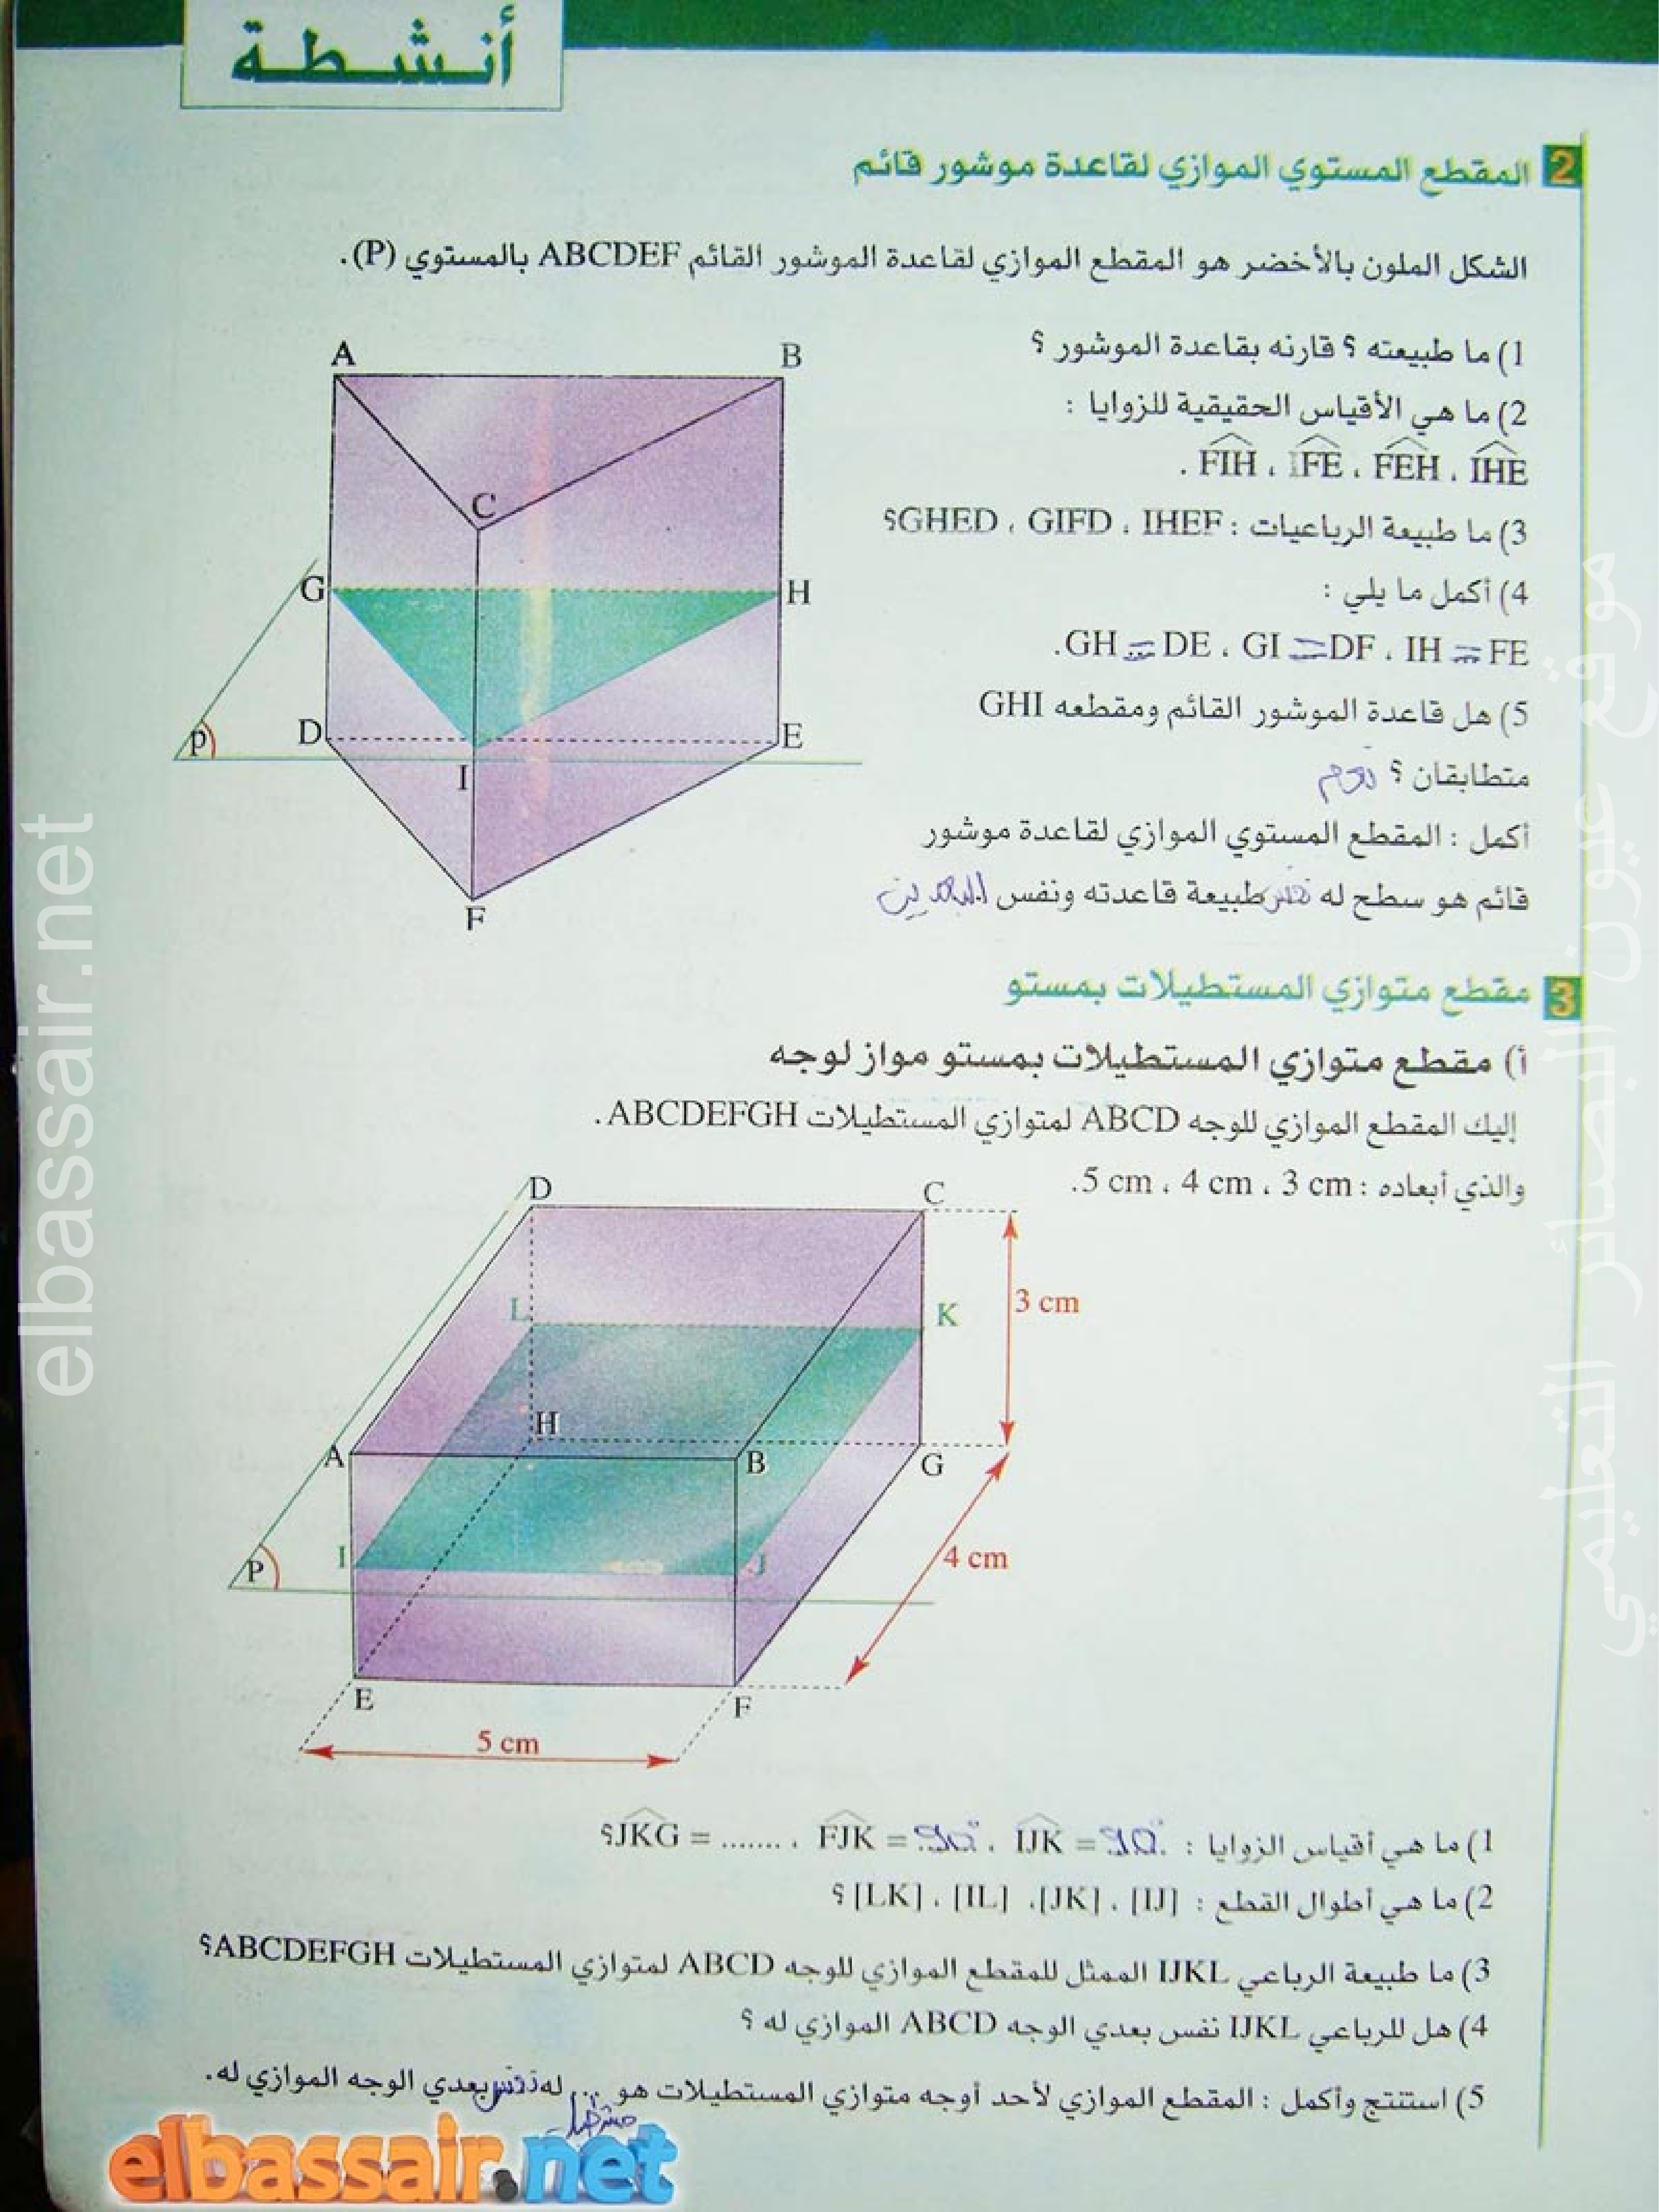 أنشطة
2 المقطع المستوي الموازي لقاعدة موشور قائم
الشكل الملون بالأخضر هو المقطع الموازي لقاعدة الموشور القائم ABCDEF بالمستوي (P).
1) ما طبيعته ؟ قارنه بقاعدة الموشور ؟
2) ما هي الأقياس الحقيقية للزوايا :
IHE ، FEH ، IFE ، FIH .
3) ما طبيعة الرباعيات : IHEF ، GIFD ، GHED؟
4) أكمل ما يلي :
GH = DE ، GI = DF ، IH = FE.
5) هل قاعدة الموشور القائم ومقطعه GHI
متطابقان ؟ نعم
أكمل : المقطع المستوي الموازي لقاعدة موشور
قائم هو سطح له نفس طبيعة قاعدته ونفس البعدين
A
B
C
G
H
D
E
I
F
p
3 مقطع متوازي المستطيلات بمستو
أ) مقطع متوازي المستطيلات بمستو مواز لوجه
إليك المقطع الموازي للوجه ABCD لمتوازي المستطيلات ABCDEFGH.
والذي أبعاده : 3 cm ، 4 cm ، 5 cm.
D
C
L
K
3 cm
H
A
B
G
I
J
P
4 cm
E
F
5 cm
1) ما هي أقياس الزوايا : IJK = 90° ، FJK = 90° ، JKG = ....... ؟
2) ما هي أطوال القطع : [IJ] ، [JK]، [IL] ، [LK] ؟
3) ما طبيعة الرباعي IJKL الممثل للمقطع الموازي للوجه ABCD لمتوازي المستطيلات ABCDEFGH؟
4) هل للرباعي IJKL نفس بعدي الوجه ABCD الموازي له ؟
5) استنتج وأكمل : المقطع الموازي لأحد أوجه متوازي المستطيلات هو ... له نفس بعدي الوجه الموازي له.
elbassair.net
elbassair.net
موقع عيون البصائر التعليمي